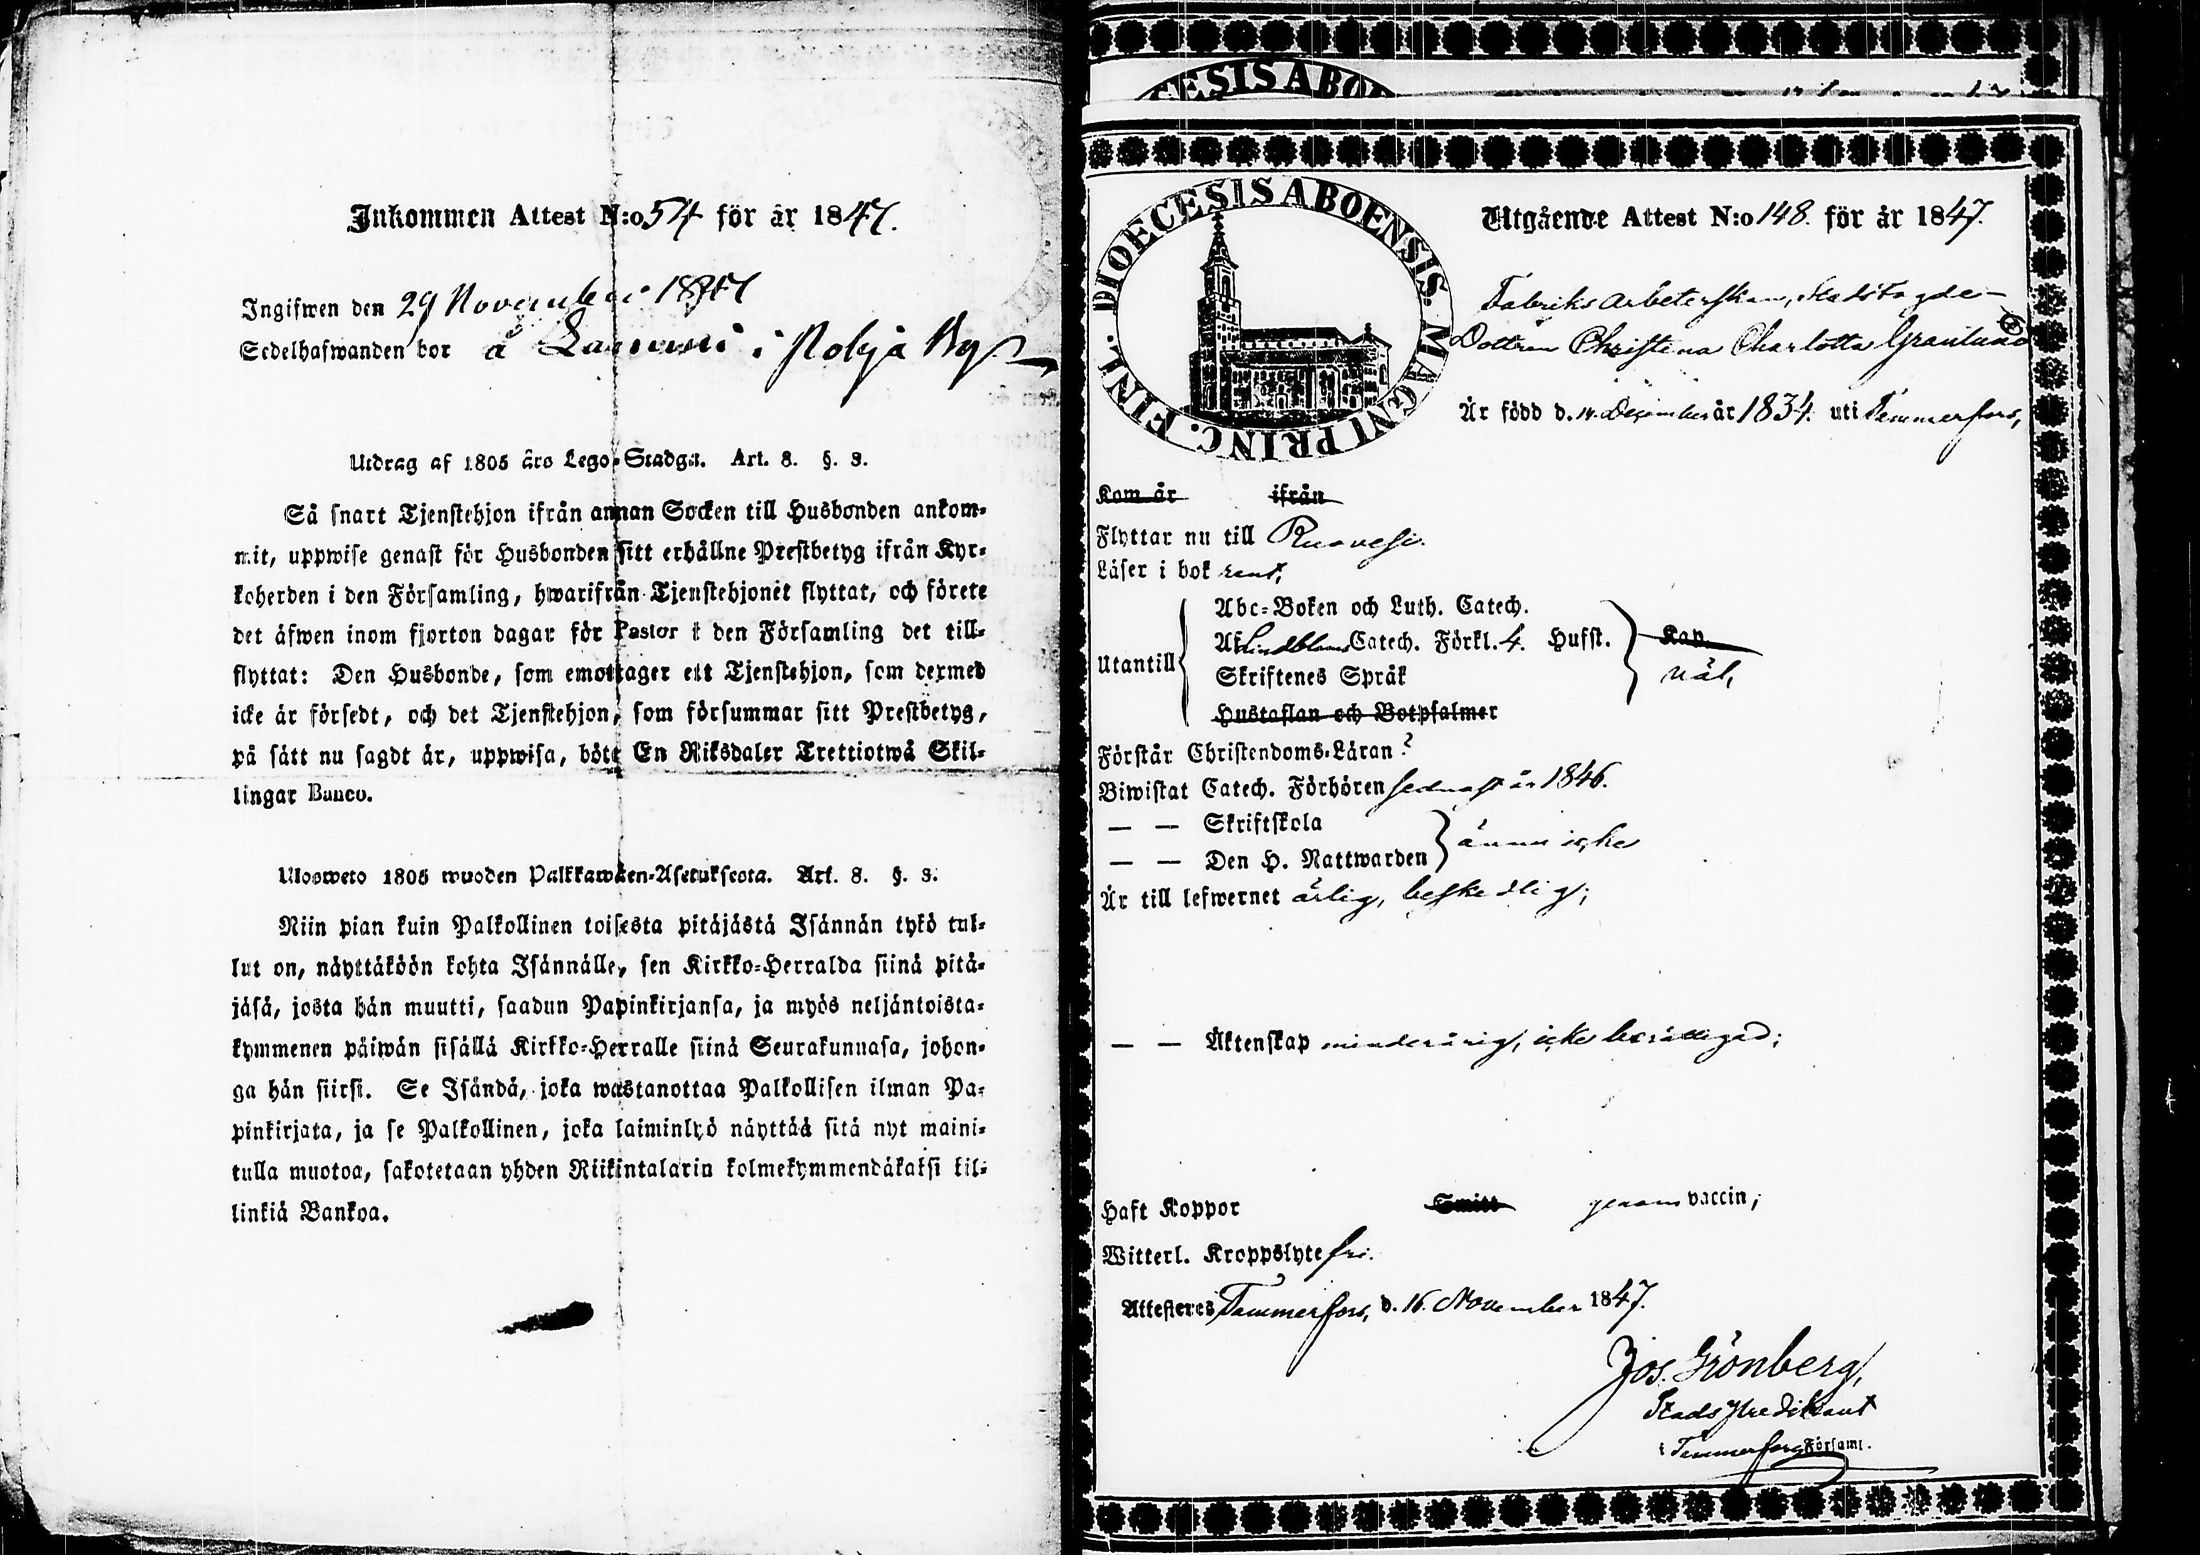 Inkommen Attest N:o 54 för år 1847.
Ingifwen den 29 November 1847
Sedelhafwanden bor å Lammi i Pohja By
Utdrag af 1805 års Lego-Stadga. Art. 8. §. 3.
Så snart Tjenstehjon ifrån annan Socken till Husbonden ankom-
mit, uppwise genast för Husbonden sitt erhållne Prestbetyg ifrån Kyr-
koherden i den Församling, hwarifrån Tjenstehjonet flyttat, och förete
det äfwen inom fjorton dagar för Pastor i den Församling det till-
flyttat: Den Husbonde, som emottager ett Tjenstehjon, som dermed
icke är försedt, och det Tjenstehjon, som försummar sitt Prestbetyg,
på sätt nu sagdt är, uppwisa, böte En Riksdaler Trettiotwå Skil-
lingar Banco.
Ulosweto 1805 wuoden Palkkawäen-Asetuksesta. Art. 8. §. 3.
Niin pian kuin Palkollinen toisesta pitäjästä Isännän tykö tul-
lut on, näyttäköön kohta Isännälle, sen Kirkko-Herralda siinä pitä-
jäsä, josta hän muutti, saadun Papinkirjansa, ja myös neljäntoista-
kymmenen päiwän sisällä Kirkko-Herralle siinä Seurakunnasa, johon-
ga hän siirsi. Se Isändä, joka wastanottaa Palkollisen ilman Pa-
pinkirjata, ja se Palkollinen, joka laiminlyö näyttää sitä nyt maini-
tulla muotoa, sakotetaan yhden Riikintalarin kolmekymmendäkaksi kil-
linkiä Bankoa.
ESIS ABO
FINL. DIOECESIS ABOENSIS. MAGNI PRINC.
Utgående Attest N:o 148. för år 1847.
Fabriks arbeterskan, Stadstogde-
Dottren Christina Charlotta Granlund
Är född d. 14 December år 1834. uti Tammerfors,
Kom år ifrån
Flyttar nu till Ruovesi.
Läser i bok rent,
Abc-Boken och Luth. Catech.
Utantill Af Lindbloms Catech. Förkl. 4. Husst. Kap.
Skriftenes Språk väl,
Hustaflan och Botpsalmer
Förstår Christendoms-Läran ?
Biwistat Catech. Förhören sednast år 1846.
— — Skriftskola
— — Den H. Nattwarden ännu icke
Är till lefwernet ärlig, beskedlig;
— — Äktenskap minderårig, icke berättigad;
Haft Koppor Smitt genom vaccin;
Witterl. Kroppslyte fri.
Attesteres Tammerfors, d. 16. November 1847.
Jos. Grönberg,
Stads Predikant
i Tammerfors Församl.